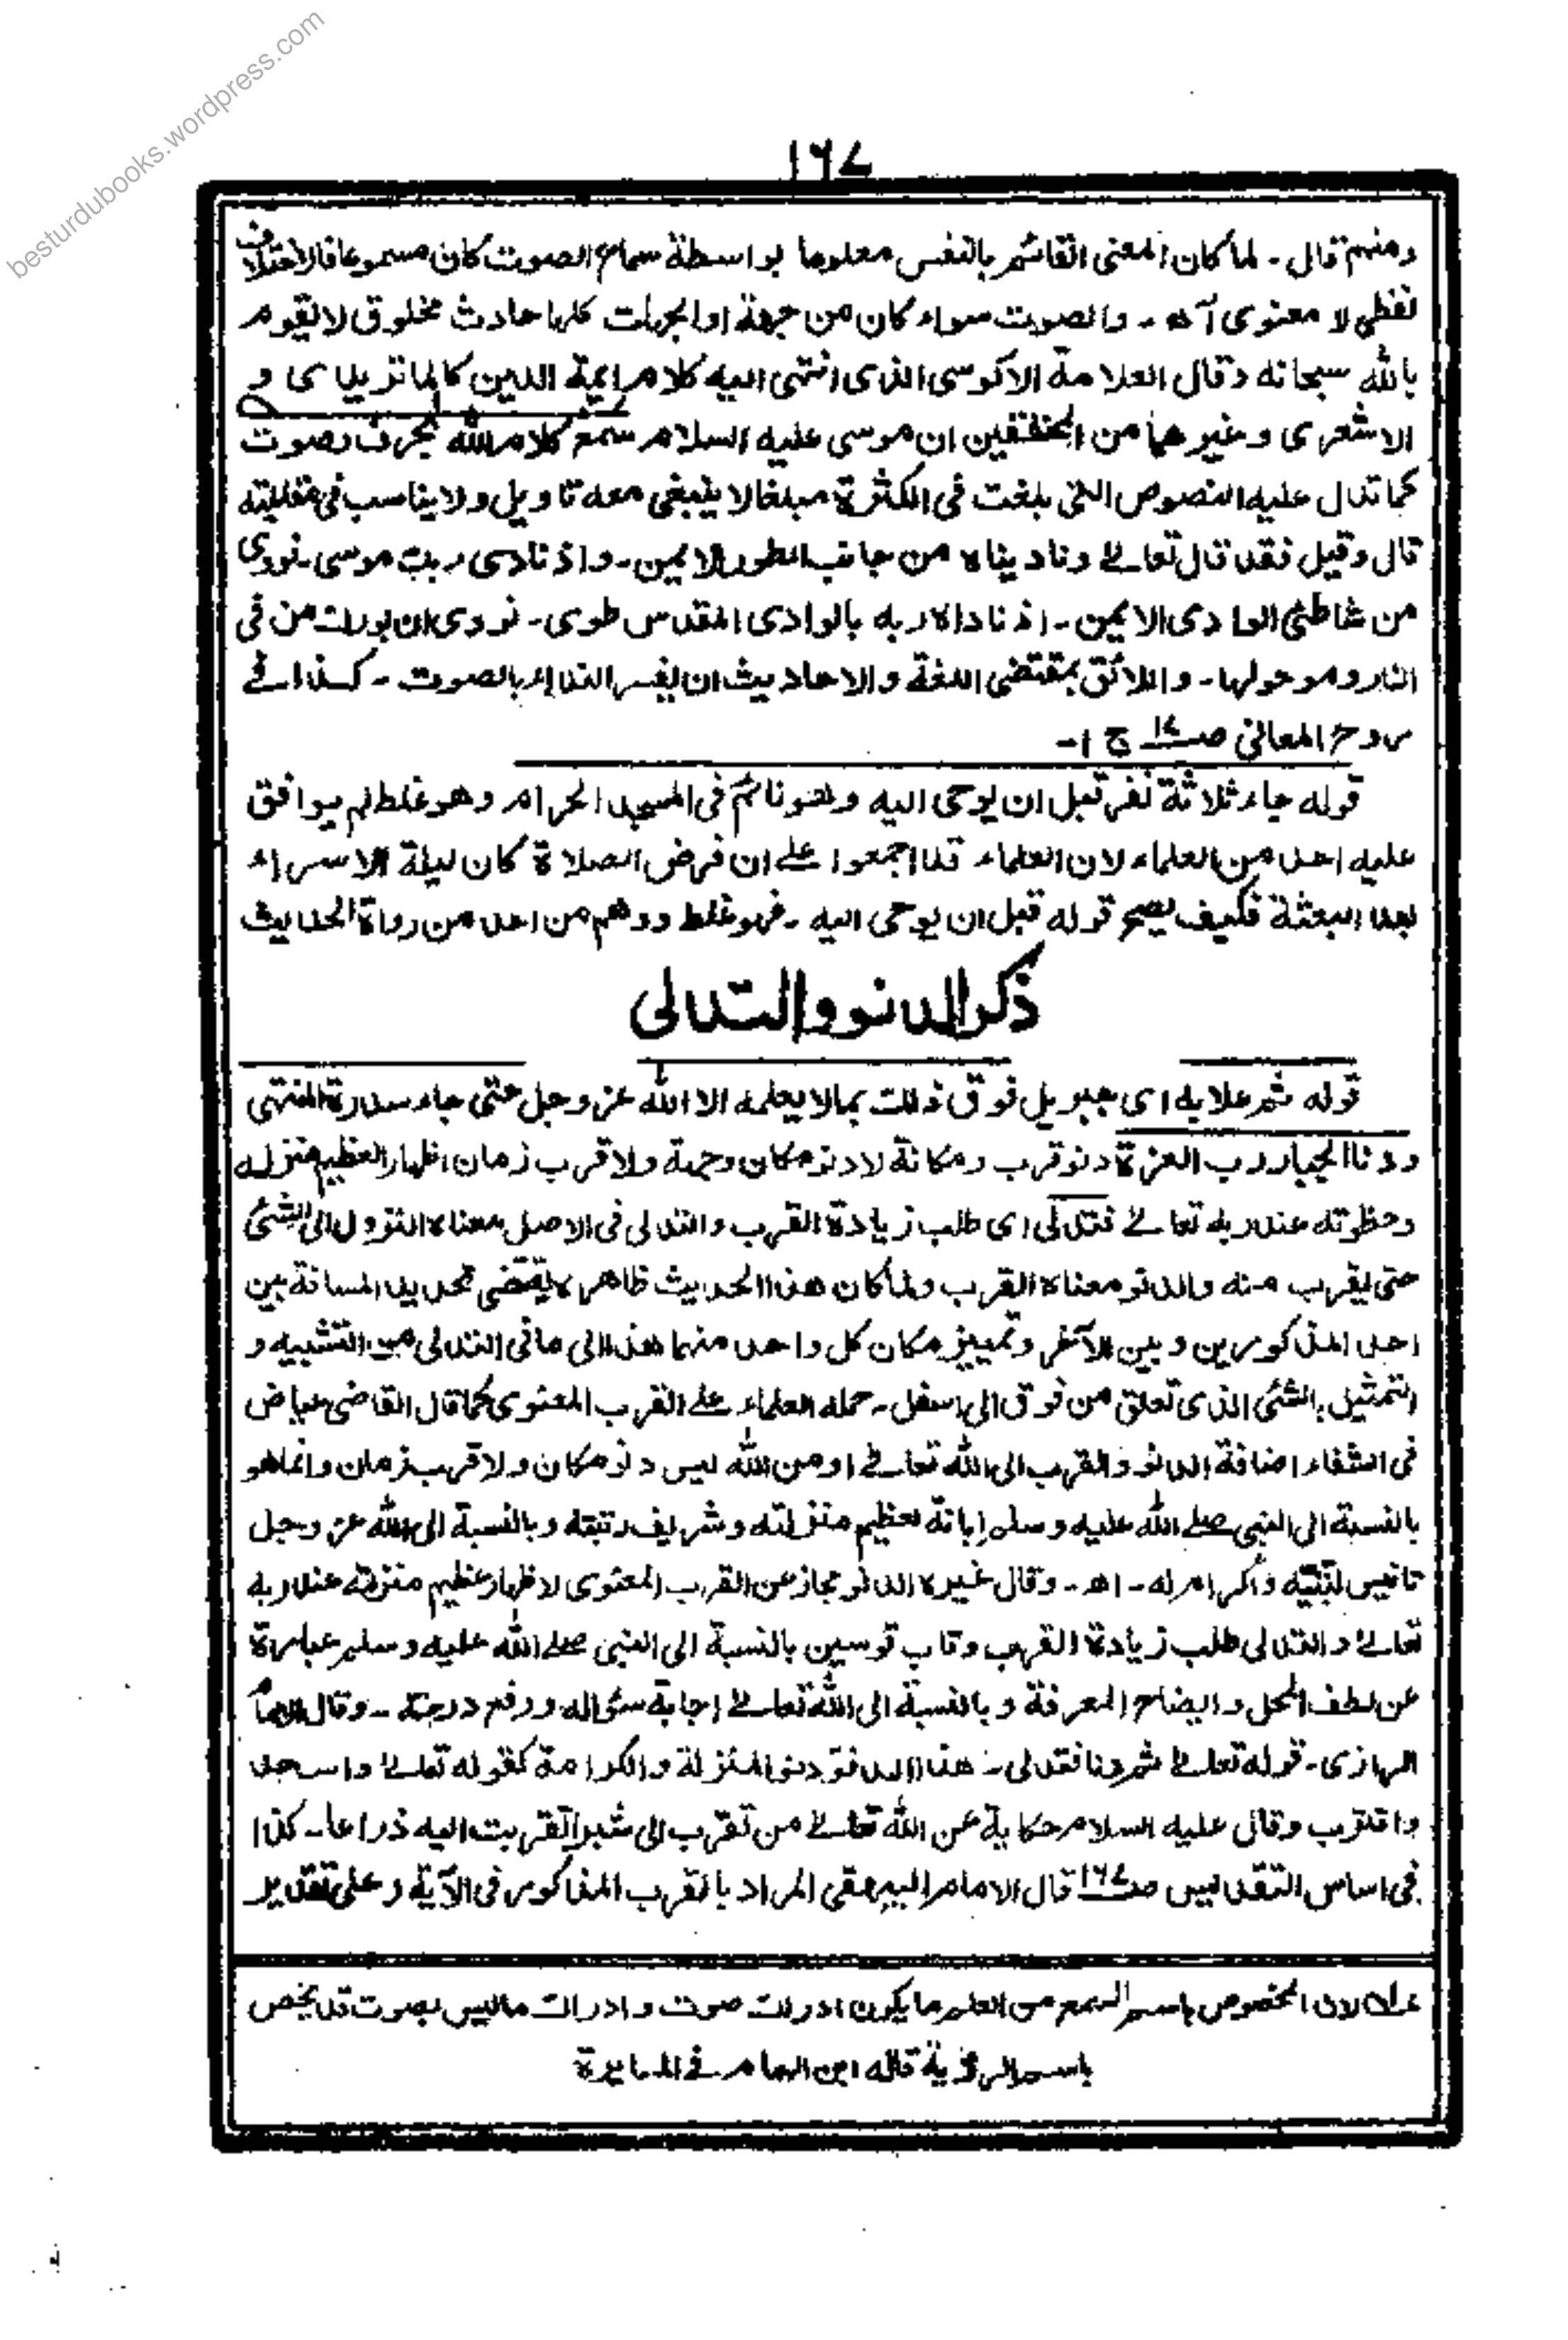 besturdubooks.wordpress.com
١٦٧
ومنهم قال ـ لما كان المعنى القائم بالنفس معلوما بواسطة سماع الصوت كان مسموعا فالاختلاف
لفظى لا معنوى آه ـ والصوت سواء كان من جهة او الجهات كلها حادث مخلوق لا يقوم
بالله سبحانه وقال العلامة الاكوسى الذى انتهى اليه كلام ايمة الدين كالماتريدى و
الاشعرى وغيرهما من المحققين ان موسى عليه السلام سمع كلام الله بحرف وصوت
كما تدل عليه النصوص التى بلغت فى الكثرة مبلغا لا ينبغى معه تاويل ولا يناسب فى مقابلته
قال وقيل فقد قال تعالے وناديناه من جانب الطور الايمن ـ واذ نادى ربك موسى ـ نودى
من شاطئ الوادى الايمن ـ اذ ناداه ربه بالوادى المقدس طوى ـ نودى ان بورك من فى
النار ومن حولها ـ واللائق بمقتضى اللغة والاحاديث ان يفسر النداء بالصوت ـ كذا فے
روح المعانى صـ١٧ ج ١ـ
قوله جاء ثلاثة نفر قبل ان يوحى اليه وهو نائم فى المسجد الحرام وهو غلط لم يوافق
عليه احد من العلماء لان العلماء قد اجمعوا علے ان فرض الصلاة كان ليلة الاسراء
بعد البعثة فكيف يصح قوله قبل ان يوحى اليه ـ فهو غلط ووهم من احد من رواة الحديث
ذكر الدنو والتدلى
قوله ثم علا به اى جبريل فوق ذلك بما لا يعلمه الا الله عز وجل حتى جاء سدرة المنتهى
ودنا الجبار رب العزة دنو قرب ومكانة لا دنو مكان وجهة ولا قرب زمان اظهار العظيم منزله
وحظوته عند ربه تعالے فتدلى اى طلب زيادة القرب والتدلى فى الاصل معناه النزول الى الشئ
حتى يقرب منه والدنو معناه القرب ولما كان هذا الحديث ظاهره يقتضى تحديد المسافة بين
احد المذكورين وبين الآخر وتمييز مكان كل واحد منهما هذا الى ما فى التدلى من التشبيه و
التمثيل بالشئ الذى تعلق من فوق الى اسفل ـ حمله العلماء علے القرب المعنوى كما قال القاضى عياض
فى الشفاء اضافة الدنو والقرب الى الله تعالے او من الله ليس دنو مكان ولا قرب زمان وانما هو
بالنسبة الى النبى صلے الله عليه وسلم ابانة لعظيم منزلته وشريف رتبته وبالنسبة الى الله عز وجل
تانيس لنبيه واكرام له ـ اه ـ وقال غيره الدنو مجاز عن القرب المعنوى لاظهار عظيم منزلته عند ربه
تعالے والتدلى طلب زيادة القرب وقاب قوسين بالنسبة الى النبى صلے الله عليه وسلم عبارة
عن لطف المحل وايضاح المعرفة وبالنسبة الى الله تعالے اجابة سئواله ورفع درجته ـ وقال الامام
الرازى ـ قوله تعالے ثم دنا فتدلى ـ هذا الدنو دنو المنزلة والكرامة كقوله تعالے واسجد
واقترب وقال عليه السلام حكاية عن الله تعالے من تقرب الى شبرا تقربت اليه ذراعا ـ كذا
فى اساس التقديس صـ١٦٧ قال الامام البيهقى المراد بالقرب المذكور فى الآية وعلى تقدير
لان المخصوص باسم السمع من العلم ما يكون ادراك صوت وادراك ما ليس بصوت قد يخص
باسم الرؤية قاله ابن الهمام فے المسايرة